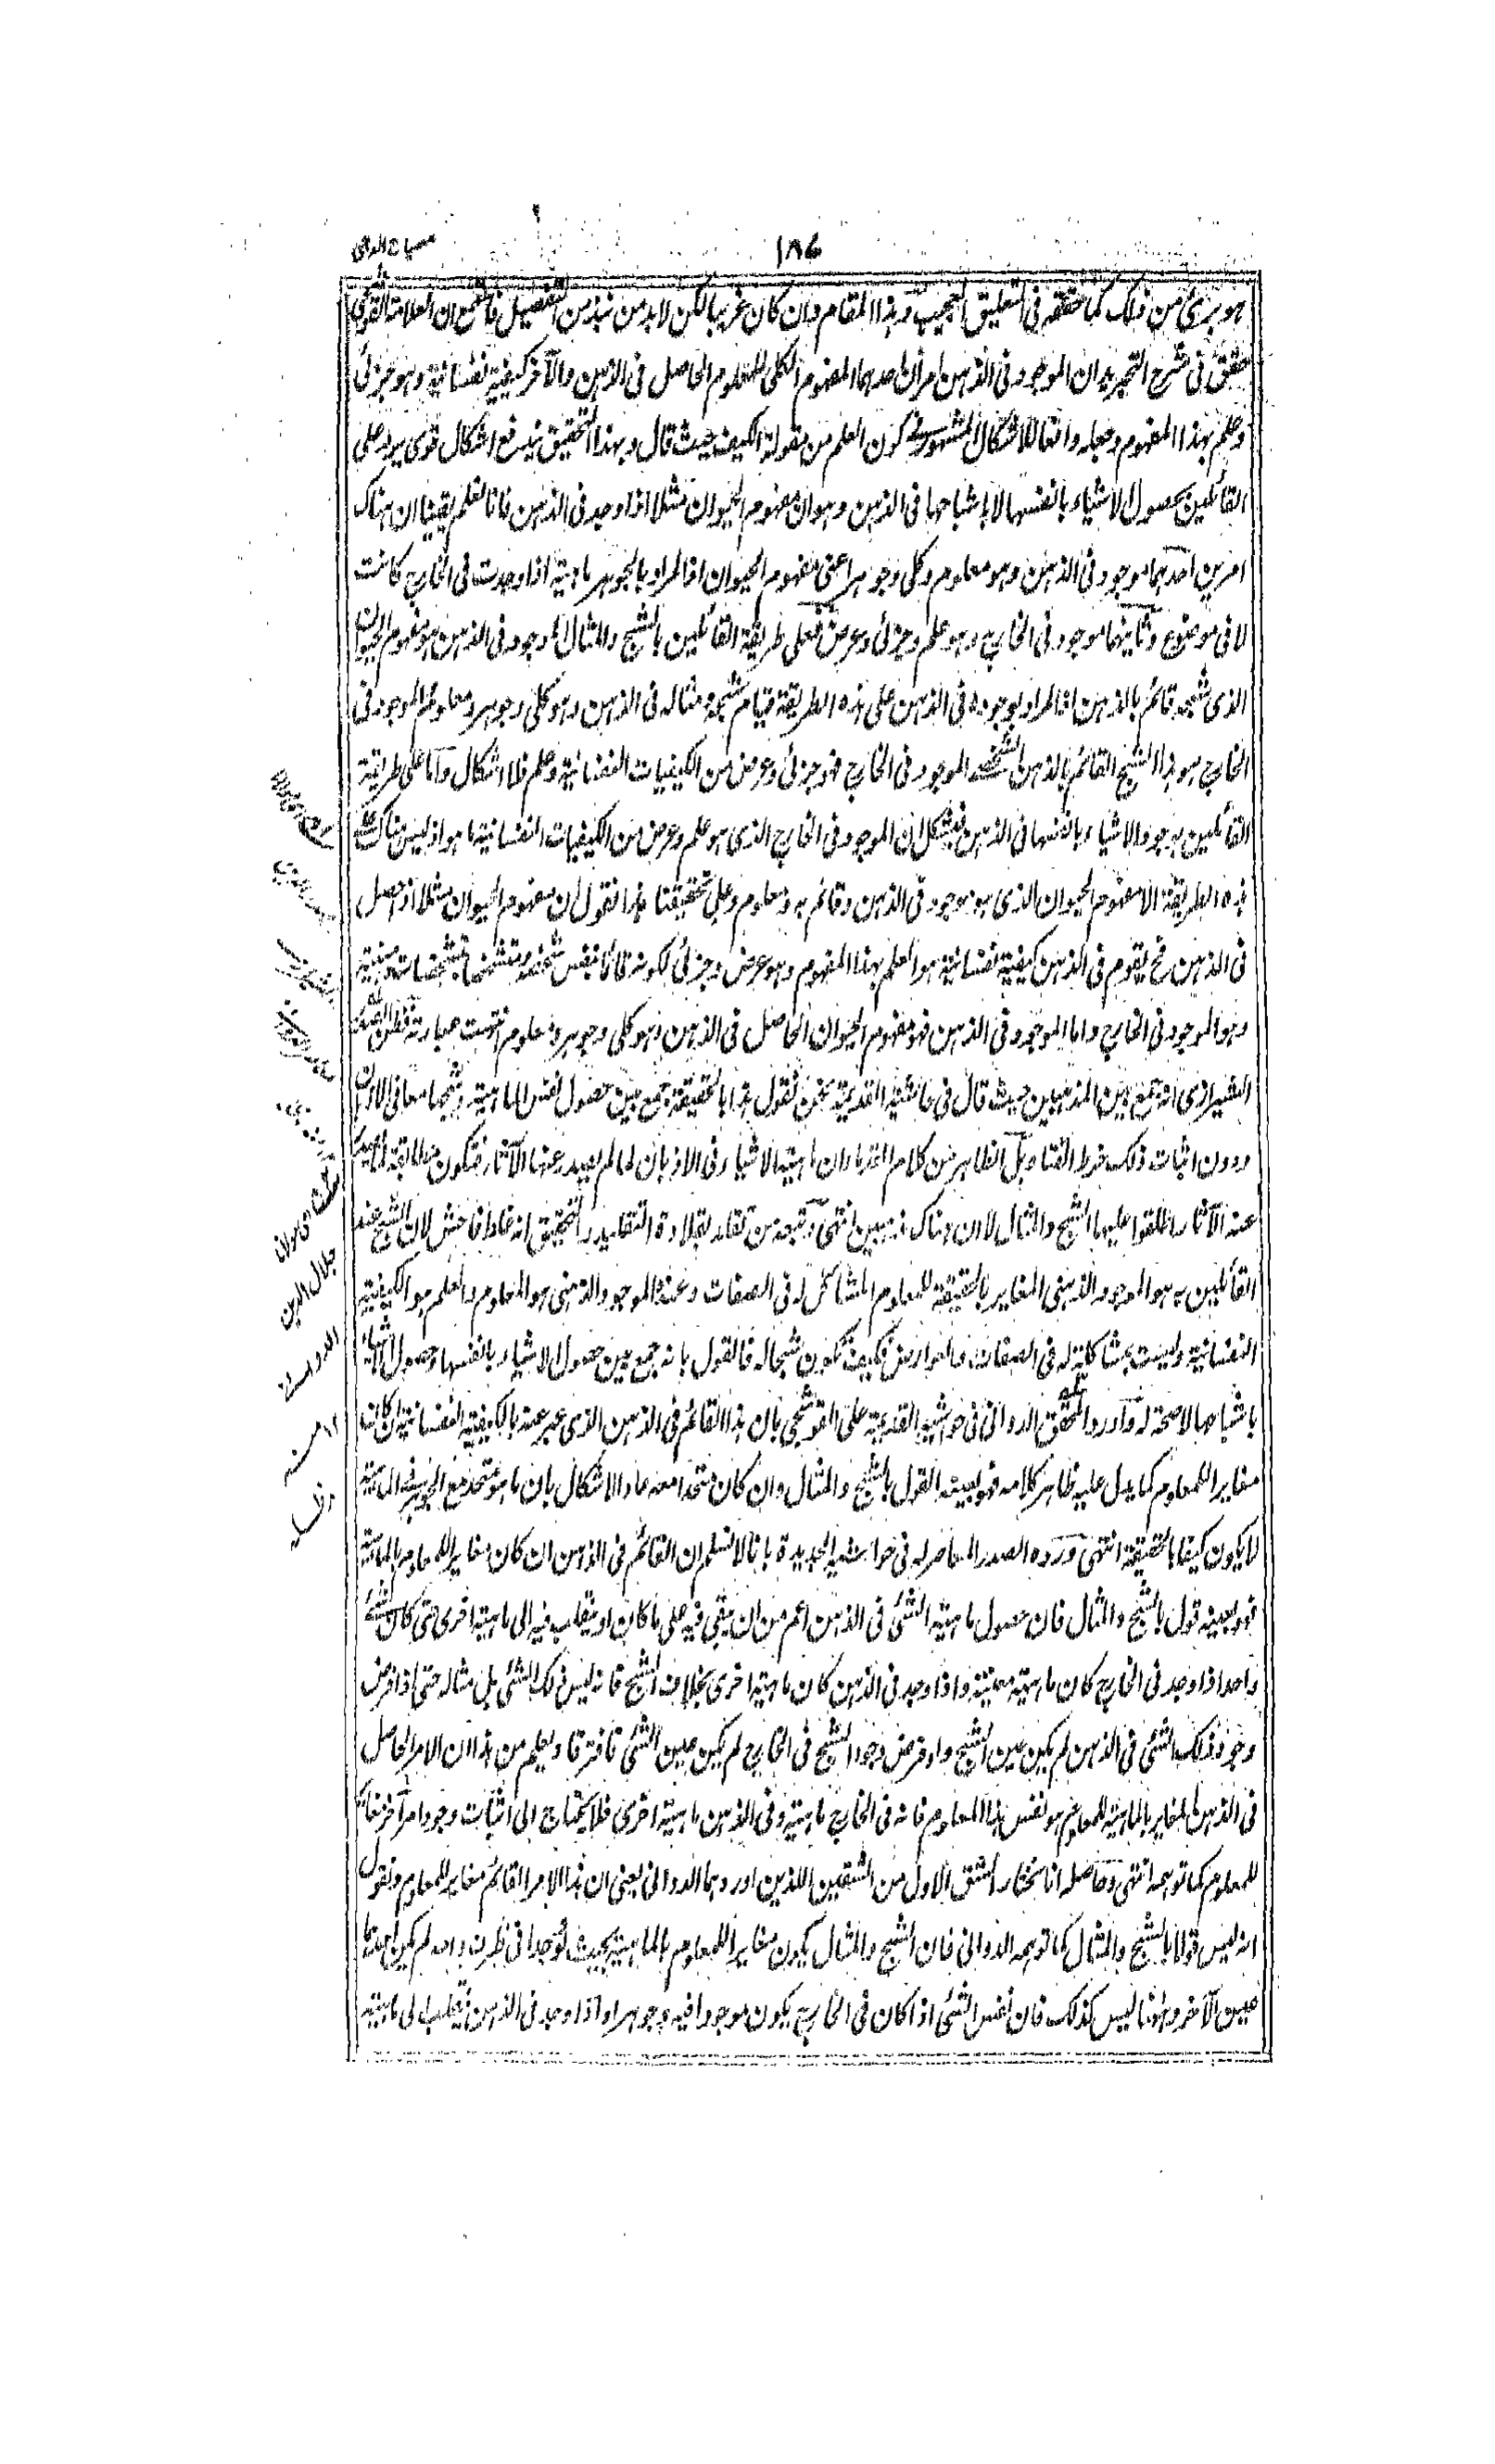 ١٨٤
مصباح الدجى
هو برئ من ذلك كما حققته فى التعليق العجيب وهذا المقام وان كان غريبا لكن لابد من نبذ من التفصيل فاستمع ان العلامة القوشجى
حقق فى شرح التجريد ان الموجود فى الذهن امران احدهما المفهوم الكلى المعلوم الحاصل فى الذهن والآخر كيفية نفسانية وهو جزئى
وعلم بهذا المفهوم وجعله دافعا للاشكال المشهور فى كون العلم من مقولة الكيف حيث قال وبهذا التحقيق يندفع اشكال قوى يرد على
القائلين بحصول الاشياء بانفسها لا باشباحها فى الذهن وهو ان مفهوم الحيوان مثلا اذا وجد فى الذهن فانا نعلم يقينا ان هناك
امرين احدهما موجود فى الذهن وهو معلوم وكلى وجوهر اعنى مفهوم الحيوان اذ المراد بالجوهر ماهية اذا وجدت فى الخارج كانت
لا فى موضوع وثانيهما موجود فى الخارج وهو علم وجزئى وعرض فعلى طريقة القائلين بالشبح والمثال الموجود فى الذهن هو مفهوم الحيوان
الذى شبحه قائم بالذهن اذ المراد بوجوده فى الذهن على هذه الطريقة قيام شبحه ومثاله فى الذهن وهو كلى وجوهر ومعلوم والموجود فى
الخارج هو هذا الشبح القائم بالذهن الشخصى الموجود فى الخارج فهو جزئى وعرض من الكيفيات النفسانية وعلم فلا اشكال واما على طريقة
القائلين بوجود الاشياء بانفسها فى الذهن فيشكل ان الموجود فى الخارج الذى هو علم وعرض من الكيفيات النفسانية ما هو اذ ليس هناك على
هذه الطريقة الا مفهوم الحيوان الذى هو موجود فى الذهن وقائم به ومعلوم وعلى تحقيقنا هذا نقول ان مفهوم الحيوان مثلا اذا حصل
فى الذهن فح يقوم فى الذهن كيفية نفسانية هو العلم بهذا المفهوم وهو عرض وجزئى لكونه قائما بنفس شخصية ومتشخصا بتشخصات ذهنية
وهو الموجود فى الخارج واما الموجود فى الذهن فهو مفهوم الحيوان الحاصل فى الذهن وهو كلى وجوهر ومعلوم انتهت عبارته فظن الصدر
الشيرازى انه جمع بين المذهبين حيث قال فى حاشيته القديمة نحن نقول هذا بالحقيقة جمع بين حصول نفس الماهية وشبحها معا فى الاذهان
ودون اثبات ذلك خرط القتاد بل الظاهر من كلام القدماء ان ماهية الاشياء فى الاذهان لما لم يصدر عنها الآثار فتكون مطابقة لما يصدر
عنه الآثار اطلقوا عليها الشبح والمثال لا ان هناك مذهبين انتهى وتبعه من تقلد بقلادة التقليد والتحقيق انه غلط فاحش لان الشبح عند
القائلين به هو الموجود الذهنى المغاير بالحقيقة للمعلوم المشاكل له فى الصفات وعنده الموجود الذهنى هو المعلوم والعلم هو الكيفية
النفسانية وليست بمشاكلة له فى الصفات والعوارض فكيف تكون شبحا له فالقول بانه جمع بين حصول الاشياء بانفسها وحصول الاشياء
باشباحها لا صحة له واورد المحقق الدوانى فى حواشيه القديمة على القوشجى بان هذا القائم فى الذهن الذى عبر عنه بالكيفية النفسانية ان كان
مغايرا للمعلوم كما يدل عليه ظاهر كلامه فهو بعينه القول بالشبح والمثال وان كان متحدا معه عاد الاشكال بان ما هو متحد مع الجوهر فى الماهية
لا يكون كيفا بالحقيقة انتهى ورده الصدر المعاصر له فى حواشيه الجديدة بانا لا نسلم ان القائم فى الذهن ان كان مغايرا للمعلوم بالماهية
فهو بعينه قول بالشبح والمثال فان حصول ماهية الشئ فى الذهن اعم من ان يبقى فيه على ما كان او ينقلب فيه الى ماهية اخرى حتى كان الشئ
واحدا اذا وجد فى الخارج كان ماهية معينة واذا وجد فى الذهن كان ماهية اخرى بخلاف الشبح فانه ليس ذلك الشئ بل مثاله حتى اذا فرض
وجود ذلك الشئ فى الذهن لم يكن عين الشبح ولو فرض وجود الشبح فى الخارج لم يكن عين الشئ فافترقا ويعلم من هذا ان الامر الحاصل
فى الذهن المغاير بالماهية للمعلوم هو نفس هذا المعلوم فانه فى الخارج ماهية وفى الذهن ماهية اخرى فلا يحتاج الى اثبات وجود امر آخر مغاير
للمعلوم كما توهمه انتهى وحاصله انا نختار الشق الاول من الشقين اللذين اوردهما الدوانى يعنى ان هذا الامر القائم مغاير للمعلوم ونقول
انه ليس قولا بالشبح والمثال كما توهمه الدوانى فان الشبح والمثال يكون مغايرا للمعلوم بالماهية بحيث لو وجدا فى ظرف واحد لم يكن احدهما
عين الآخر وههنا ليس كذلك فان نفس الشئ اذا كان فى الخارج يكون موجودا فيه وجوهرا واذا وجد فى الذهن ينقلب الى ماهية
مولانا
جلال الدين
الدوانى
١٢ منه
مد ظله